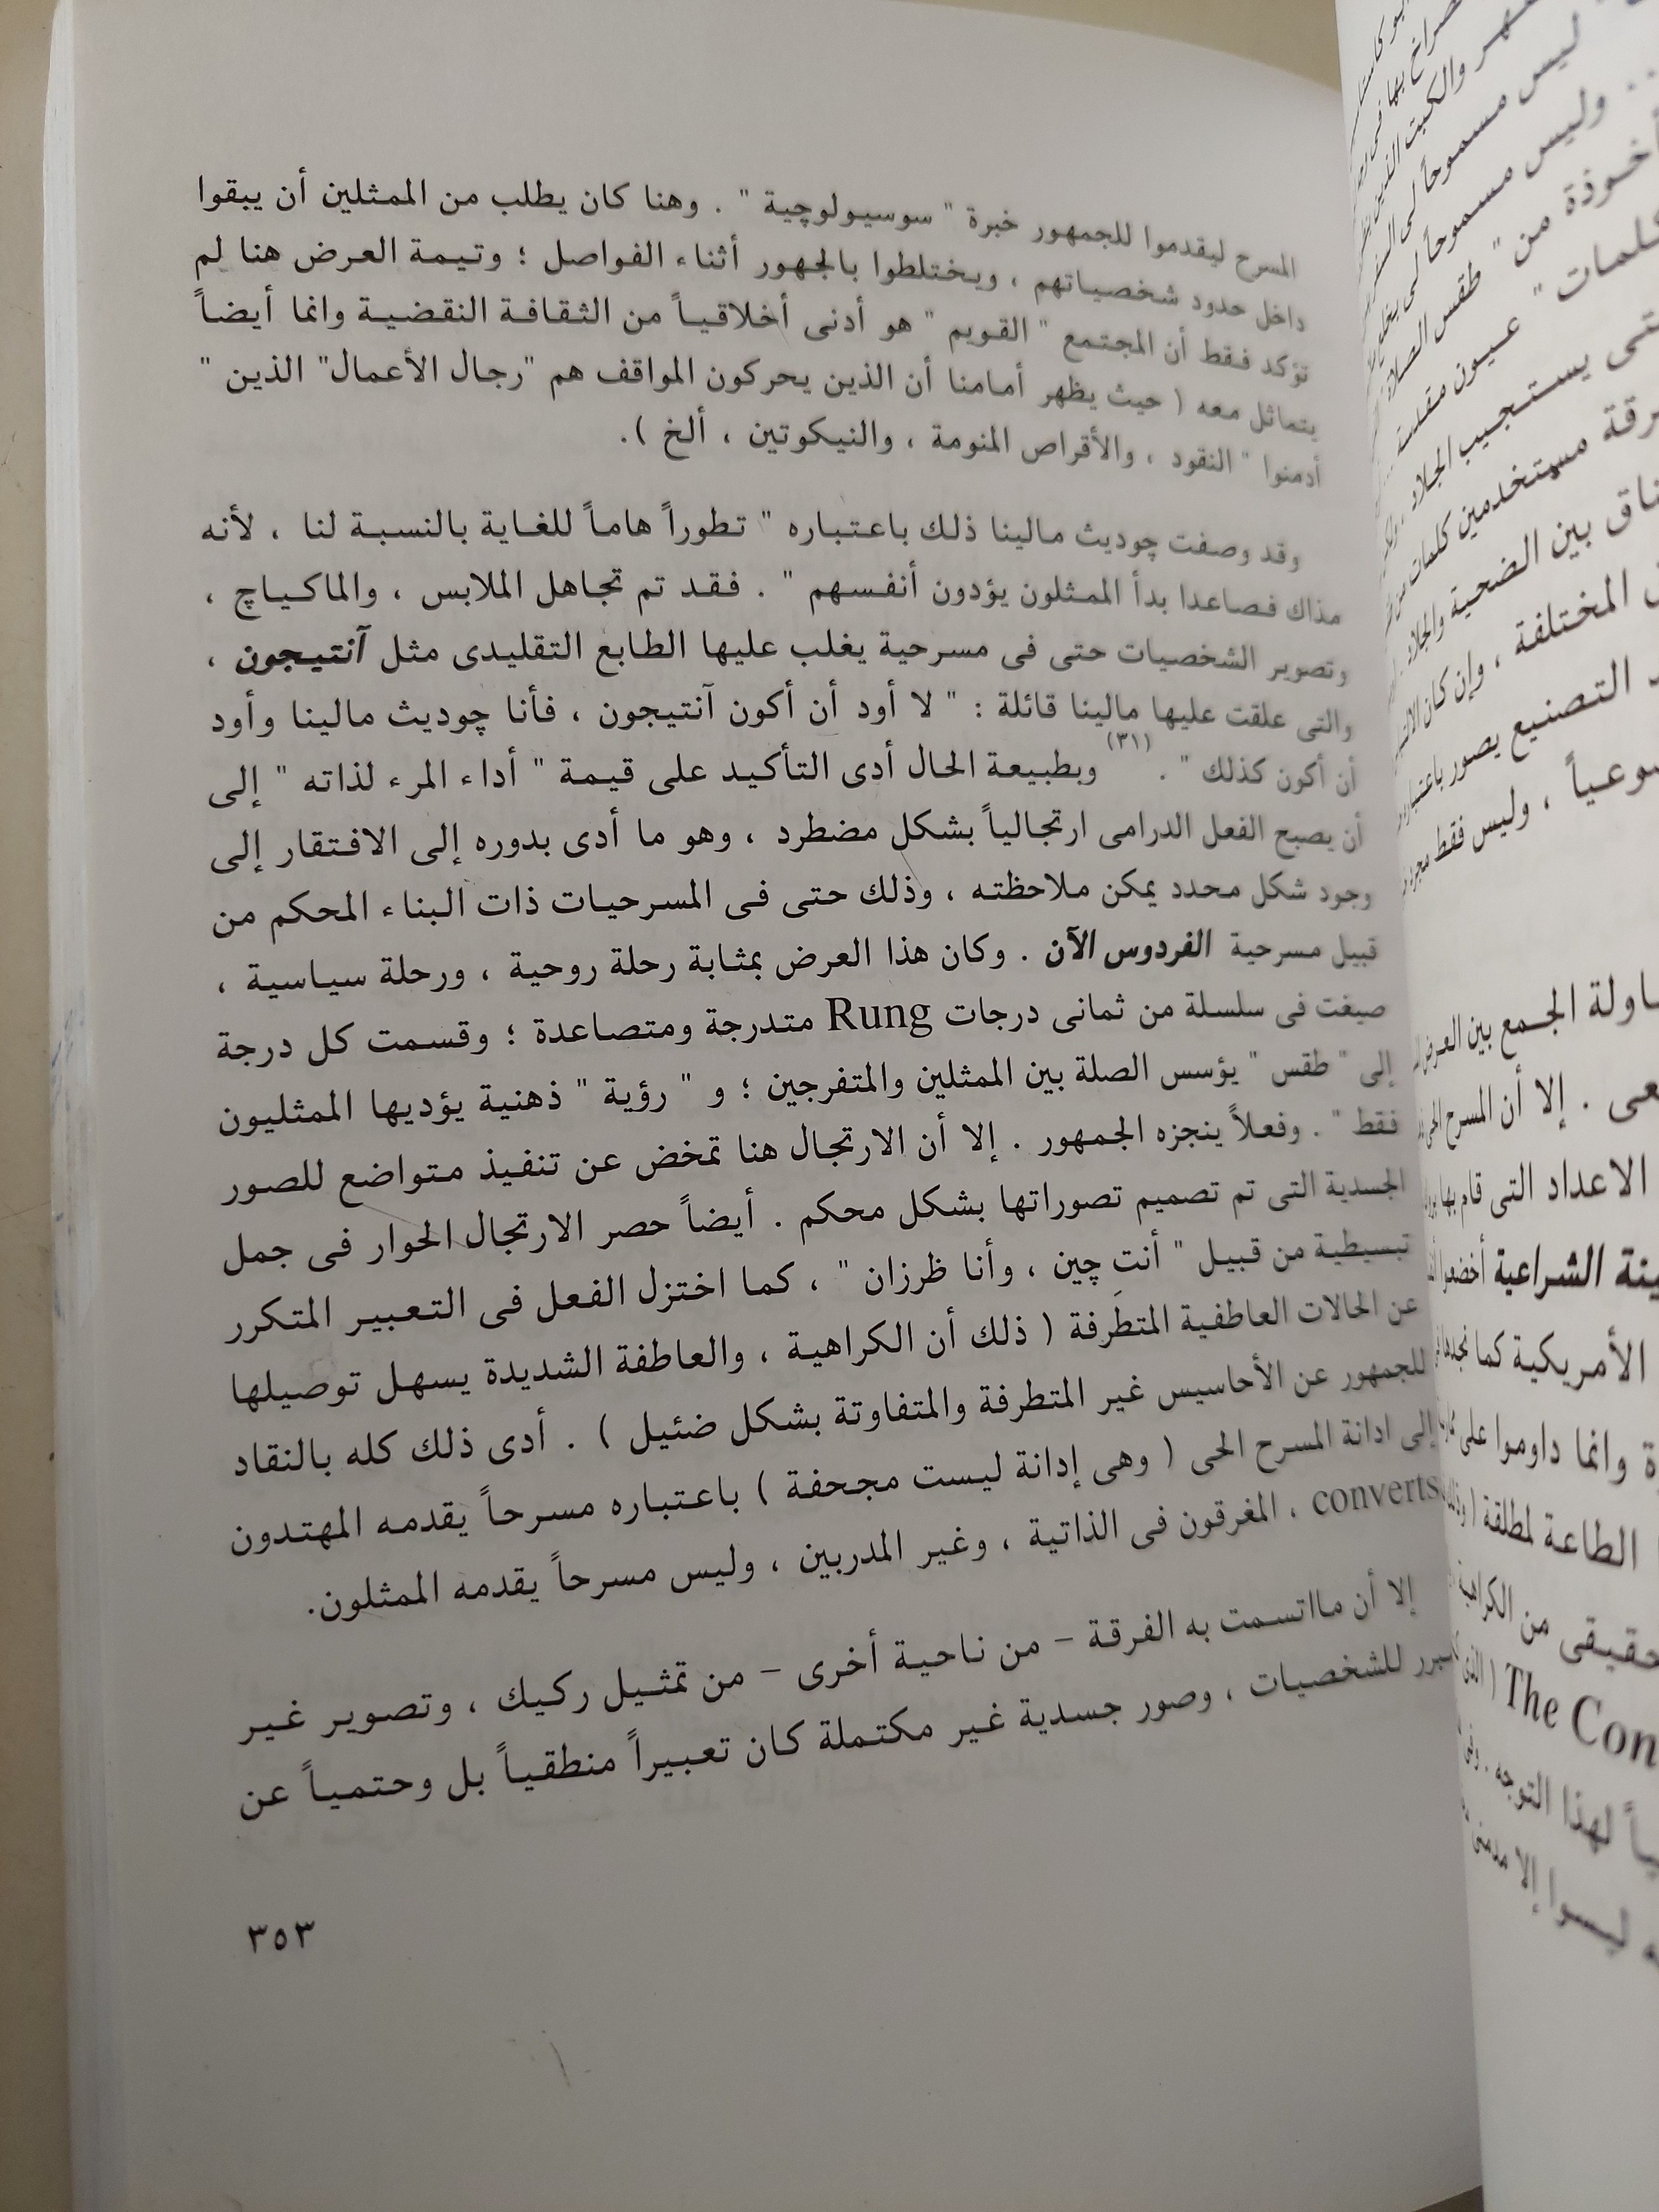 المسرح ليقدموا للجمهور خبرة " سوسيولوچية " . وهنا كان يطلب من الممثلين أن يبقوا
داخل حدود شخصياتهم ، ويختلطوا بالجهور أثناء الفواصل ؛ وتيمة العرض هنا لم
تؤكد فقط أن المجتمع " القويم " هو أدنى أخلاقياً من الثقافة النقضية وانما أيضاً
يتماثل معه ( حيث يظهر أمامنا أن الذين يحركون المواقف هم "رجال الأعمال" الذين "
أدمنوا " النقود ، والأقراص المنومة ، والنيكوتين ، ألخ ).
وقد وصفت چوديث مالينا ذلك باعتباره " تطوراً هاماً للغاية بالنسبة لنا ، لأنه
مذاك فصاعدا بدأ الممثلون يؤدون أنفسهم " . فقد تم تجاهل الملابس ، والماكياچ ،
وتصوير الشخصيات حتى فى مسرحية يغلب عليها الطابع التقليدى مثل آنتيجون ،
والتى علقت عليها مالينا قائلة : " لا أود أن أكون آنتيجون ، فأنا چوديث مالينا وأود
أن أكون كذلك " . (٣١) وبطبيعة الحال أدى التأكيد على قيمة " أداء المرء لذاته " إلى
أن يصبح الفعل الدرامى ارتجالياً بشكل مضطرد ، وهو ما أدى بدوره إلى الافتقار إلى
وجود شكل محدد يمكن ملاحظته ، وذلك حتى فى المسرحيات ذات البناء المحكم من
قبيل مسرحية الفردوس الآن . وكان هذا العرض بمثابة رحلة روحية ، ورحلة سياسية ،
صيغت فى سلسلة من ثمانى درجات Rung متدرجة ومتصاعدة ؛ وقسمت كل درجة
إلى " طقس " يؤسس الصلة بين الممثلين والمتفرجين ؛ و " رؤية " ذهنية يؤديها الممثليون
فقط " . وفعلاً ينجزه الجمهور . إلا أن الارتجال هنا تمخض عن تنفيذ متواضع للصور
الجسدية التى تم تصميم تصوراتها بشكل محكم . أيضاً حصر الارتجال الحوار فى جمل
تبسيطية من قبيل " أنتِ چين ، وأنا ظرزان " ، كما اختزل الفعل فى التعبير المتكرر
عن الحالات العاطفية المتطَرفة ( ذلك أن الكراهية ، والعاطفة الشديدة يسهل توصيلها
للجمهور عن الأحاسيس غير المتطرفة والمتفاوتة بشكل ضئيل ) . أدى ذلك كله بالنقاد
إلى ادانة المسرح الحى ( وهى إدانة ليست مجحفة ) باعتباره مسرحاً يقدمه المهتدون
converts ، المغرقون فى الذاتية ، وغير المدربين ، وليس مسرحاً يقدمه الممثلون.
إلا أن مااتسمت به الفرقة – من ناحية أخرى – من تمثيل ركيك ، وتصوير غير
مبرر للشخصيات ، وصور جسدية غير مكتملة كان تعبيراً منطقياً بل وحتمياً عن
٣٥٣
ليس مسموحاً لى
وليس مسموحاً لى
من " طقس الصلاة
كلمات " عيون مقدسة
يستجيب الجلاد
مستخدمين كلمات من
بين الضحية والجلاد
المختلفة ، وإن كان
التصنيع يصور باعتباره
، وليس فقط مجرد
الجمع بين العرض
. إلا أن المسرح الحى
الاعداد التى قام بها
الشراعية أخضعوا
الأمريكية كما نجدها
وانما داوموا على
الطاعة لمطلقة
من الكراهية
The Con
لهذا التوجه
ليسوا إلا مدمنى